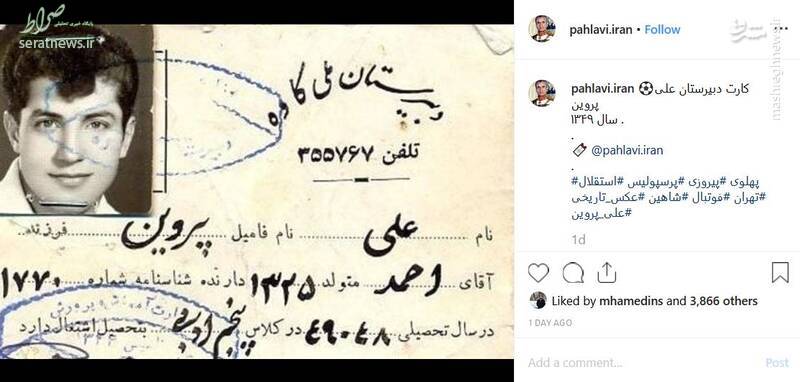 صراط
پایگاه خبری تحلیلی
seratnews.ir
دبیرستان ملی کاوه
تلفن ۳۵۵۷۶۷
نام علی نام فامیل پروین فرزند
آقای احمد متولد ۱۳۲۵ دارنده شناسنامه شماره ۱۷۷۰
در سال تحصیلی ۴۹-۴۸ در کلاس پنجم ادبی بتحصیل اشتغال دارد
pahlavi.iran • Follow
mashreghnews.ir
pahlavi.iran ⚽کارت دبیرستان علی
پروین
سال ۱۳۴۹ .
.
@pahlavi.iran
.
#پهلوی #پیروزی #پرسپولیس #استقلال
#تهران #فوتبال #شاهین #عکس_تاریخی
#علی_پروین
1d
Liked by mhamedins and 3,866 others
1 DAY AGO
Add a comment...
Post